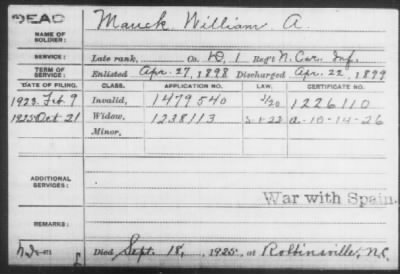 DEAD
NAME OF SOLDIER: Mauck William A.
SERVICE: Late rank, Co. D, 1 Reg't N. Car. Inf.
TERM OF SERVICE: Enlisted Apr. 27, 1898 Discharged Apr. 22, 1899
DATE OF FILING. CLASS. APPLICATION NO. LAW. CERTIFICATE NO.
1923. Feb. 9 Invalid, 1479540 1226110
1925 Oct 21 Widow, 1238113 5-1-20 a-10-14-26
Minor,
ADDITIONAL SERVICES:
War with Spain.
REMARKS:
Died Sept. 18, 1925, at Robbinsville, N.C.